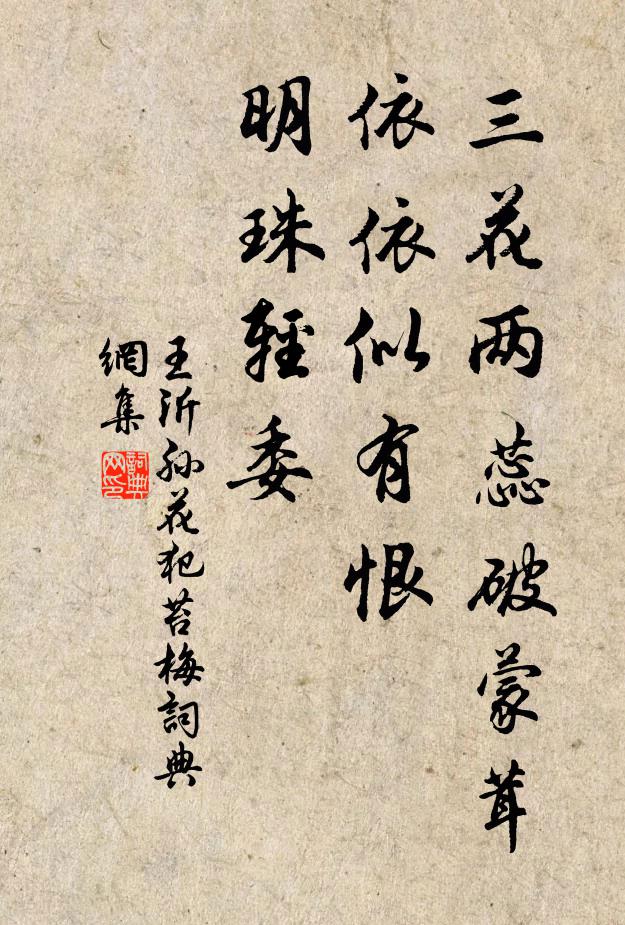 三花两蕊破蒙茸
依依似有恨
明珠輕委
王沂孙花犯苔梅詞典
網集
詞典
网印